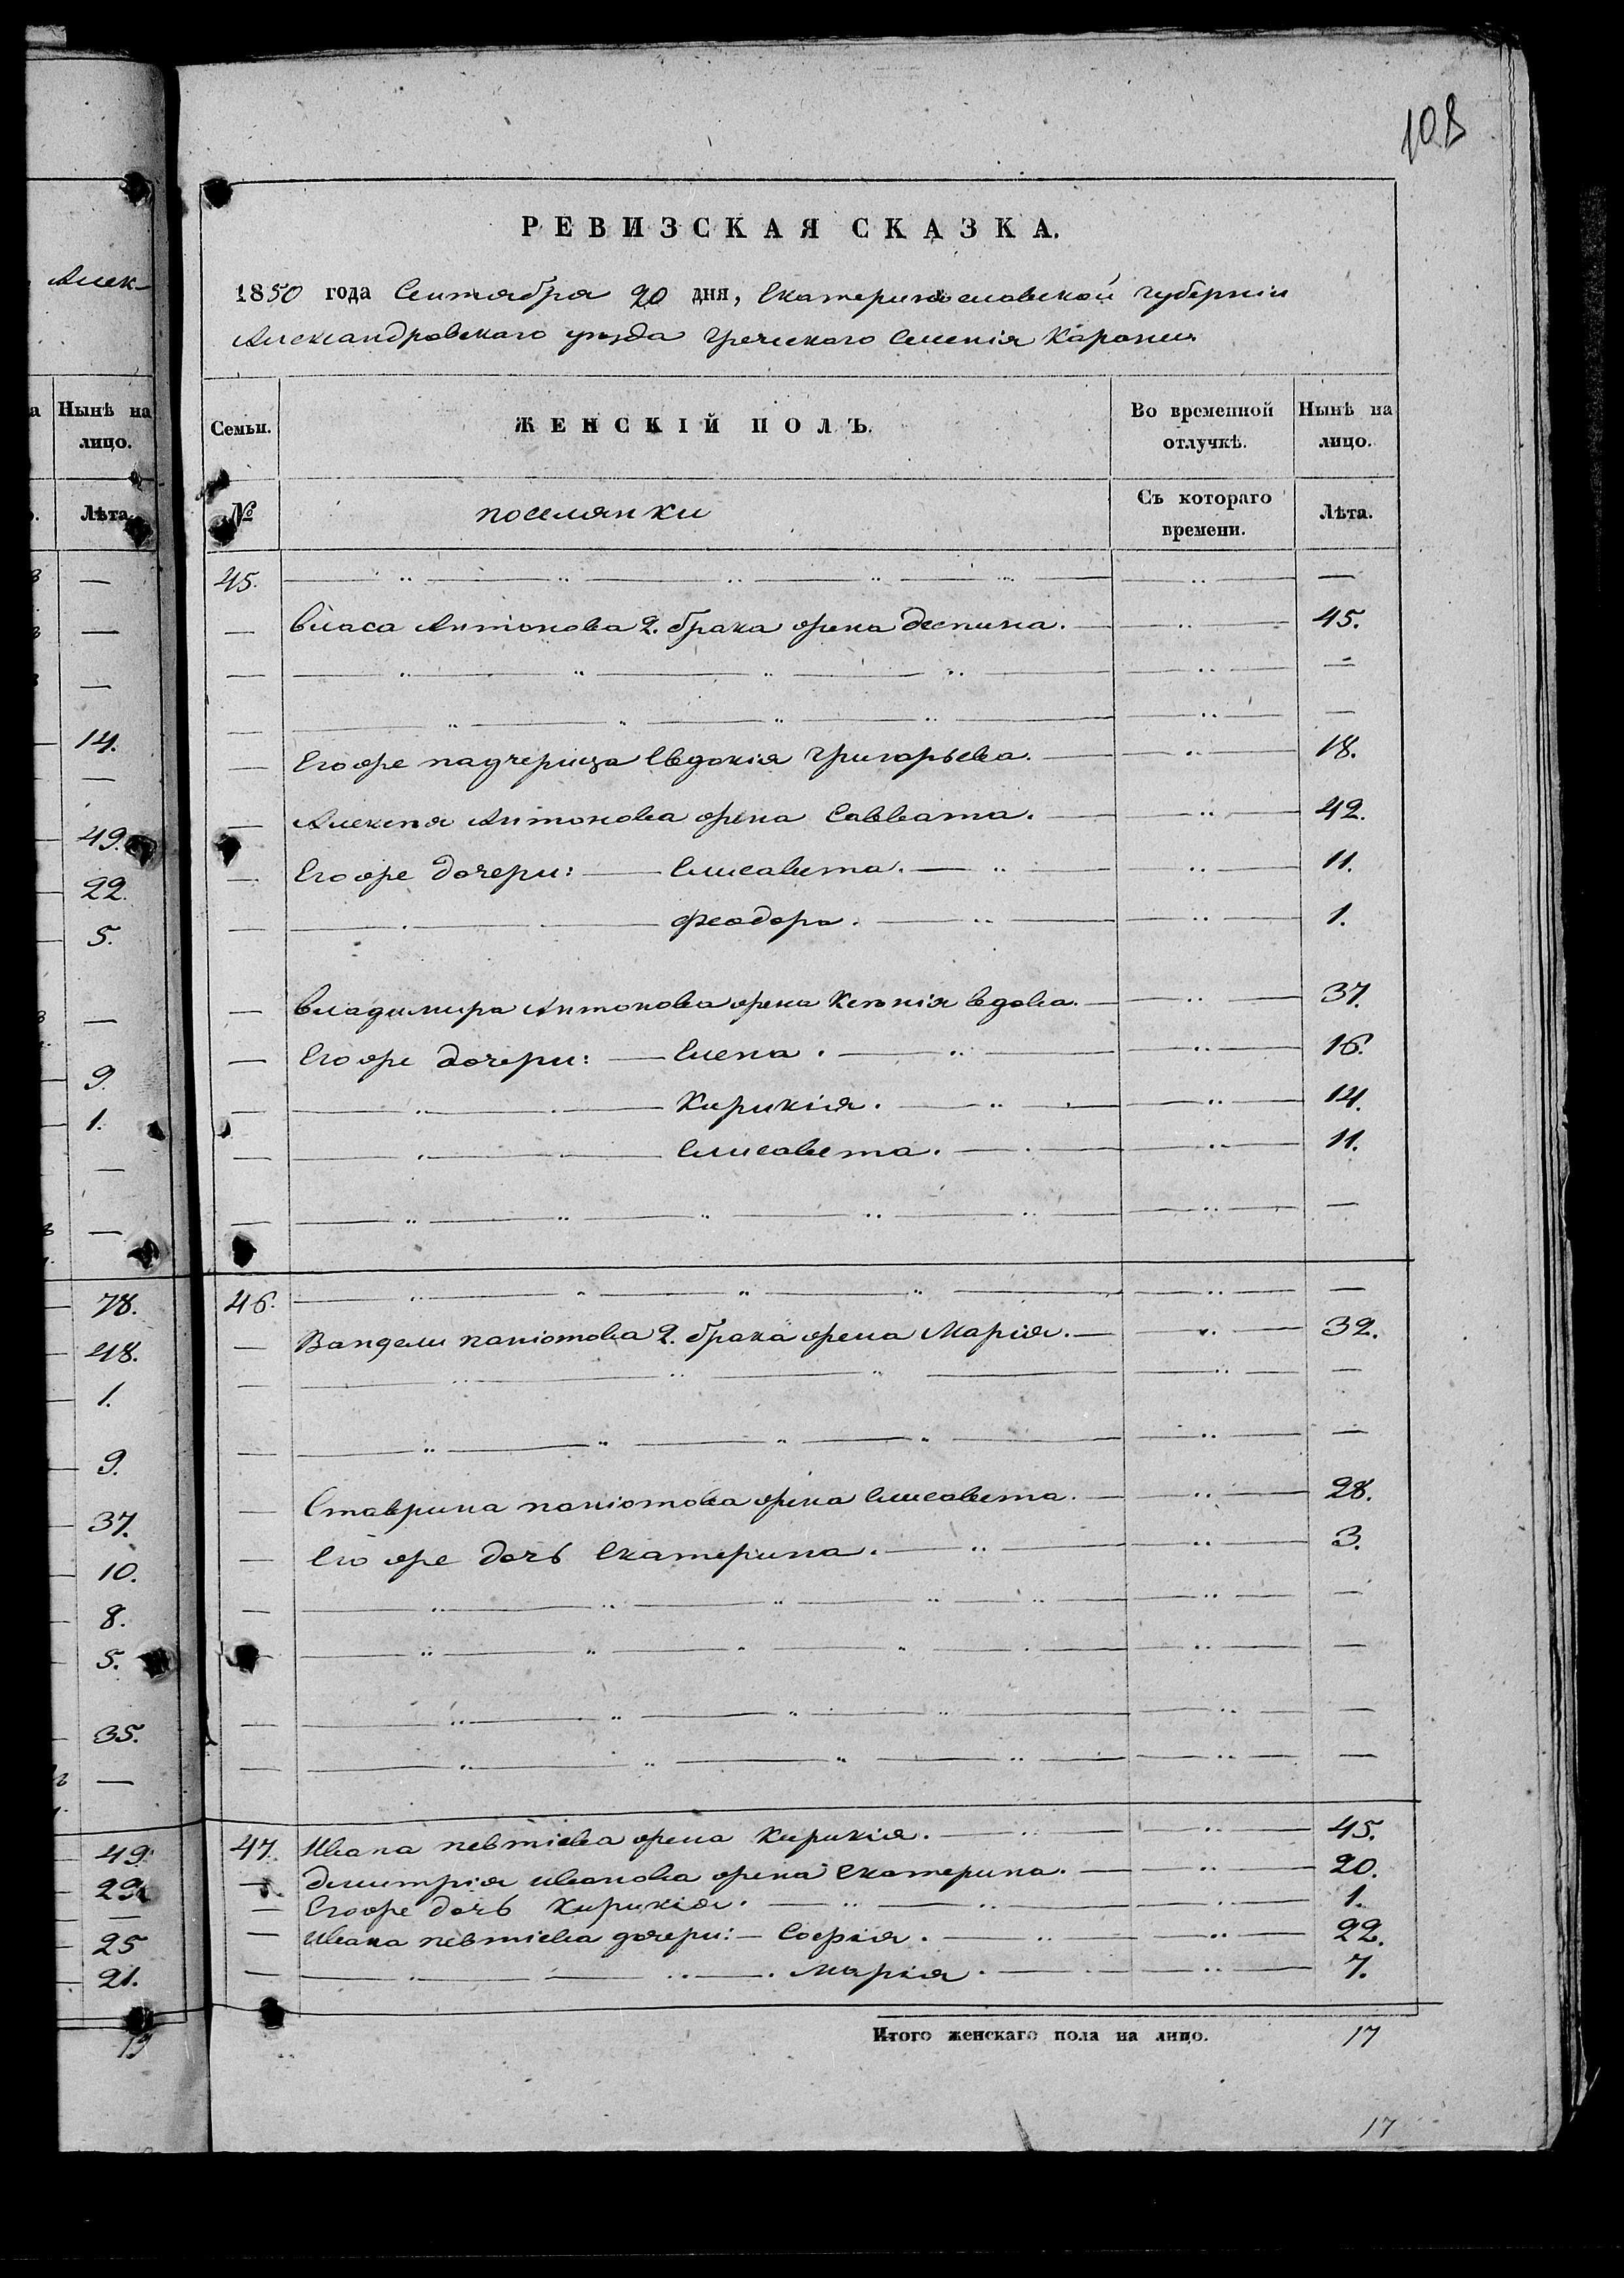 108
РЕВИЗСКАЯ СКАЗКА.
1850 года Сентября 20 дня, Екатеринославской губерніи
Александровскаго уезда Греческаго Селенія Карани
Семьи.
ЖЕНСКІЙ ПОЛЪ.
Во временной отлучкѣ.
Нынѣ на лицо.
№
поселянки
Съ котораго времени.
Лѣта.
45. — —
— Власа Антонова 2. брака жена Деспина. — 45.
— — —
— — —
— Егоже падчерица Евдокія Григорьева. — 18.
— Алексѣя Антонова жена Саввата. — 42.
— Егоже дочери: — Елисавета. — 11.
— — Феодора. — 1.
— Владимира Антонова жена Ксенія вдова. — 37.
— Егоже дочери: — Елена. — 16.
— — Кирикія. — 14.
— — Елисавета. — 11.
— — —
46. — —
— Вандели паніотова 2. брака жена Марія. — 32.
— — —
— — —
— Ставрина паніотова жена Елисавета. — 28.
— Егоже дочь Екатерина. — 3.
— — —
— — —
— — —
— — —
47. Ивана певтіева жена Кирикія. — 45.
— Дмитрія иванова жена Екатерина. — 20.
— Егоже дочь Кирикія. — 1.
— Ивана певтіева дочери: — Софія. — 22.
— — Марія. — 7.
Итого женскаго пола на лицо. 17
17
Алек-
Нынѣ на лицо.
Лѣта
—
—
—
14.
—
49.
22.
5.
—
9.
1.
—
—
78.
48.
1.
9.
37.
10.
8.
5.
35.
—
49.
—
25
21.